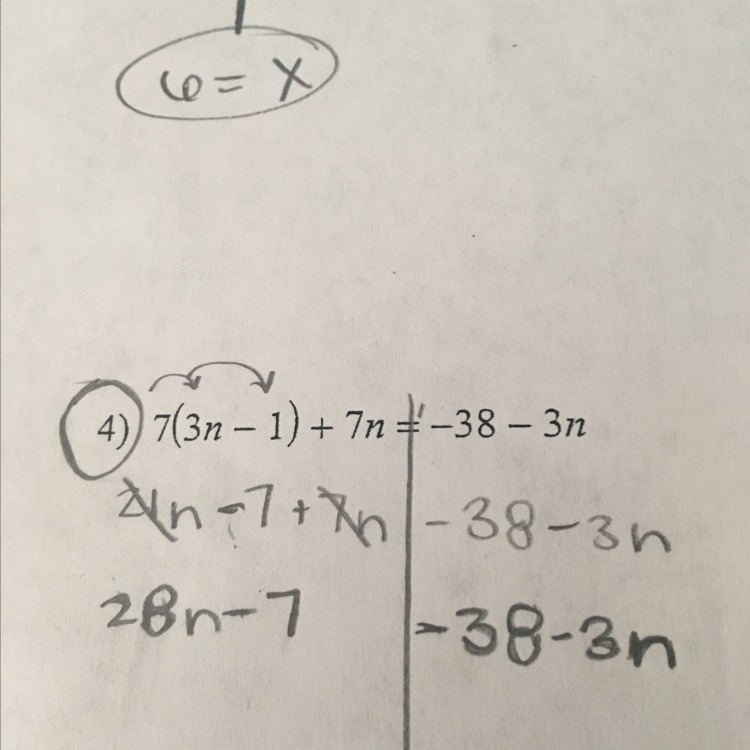 6 = x
4) 7(3n − 1) + 7n = −38 − 3n
21n − 7 + 7n | − 38 − 3n
28n − 7 | − 38 − 3n